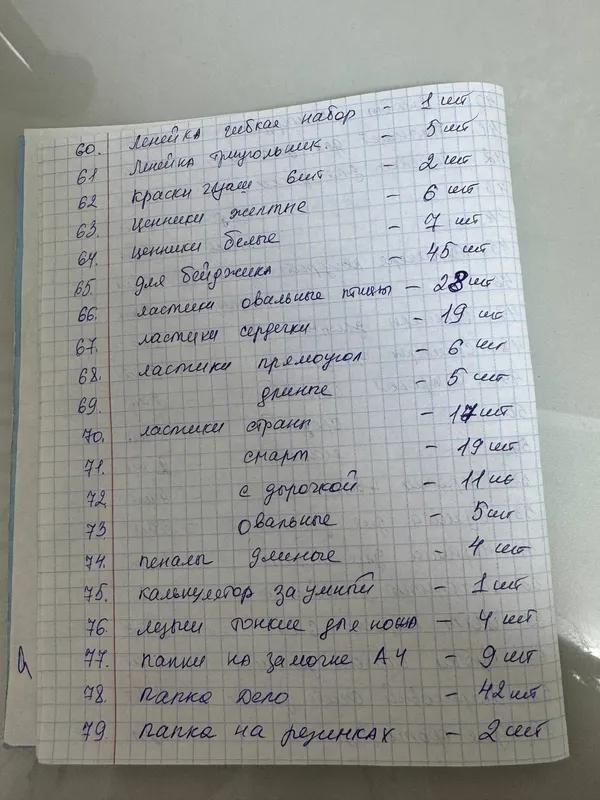 60. Линейка гибкая набор - 1 шт
61 Линейка триугольник - 5 шт
62 краски гуаш 6шт - 2 шт
63. ценники желтые - 6 шт
64. ценники белые - 7 шт
65. для бейджика - 45 шт
66. ластики овальные птицы - 28 шт
67. ластики сердечки - 19 шт
68. ластики прямоугол - 6 шт
69. длиные - 5 шт
70. ластики страны - 17 шт
71. смарт - 19 шт
72 с дырочкой - 11 шт
73 овальные - 5 шт
74. пеналы длиные - 4 шт
75. калькулятор за умный - 1 шт
76. лезвии тонкие для ножа - 4 шт
77. папки на замочке А4 - 9 шт
78. папка дело - 42 шт
79 папка на резинках - 2 шт